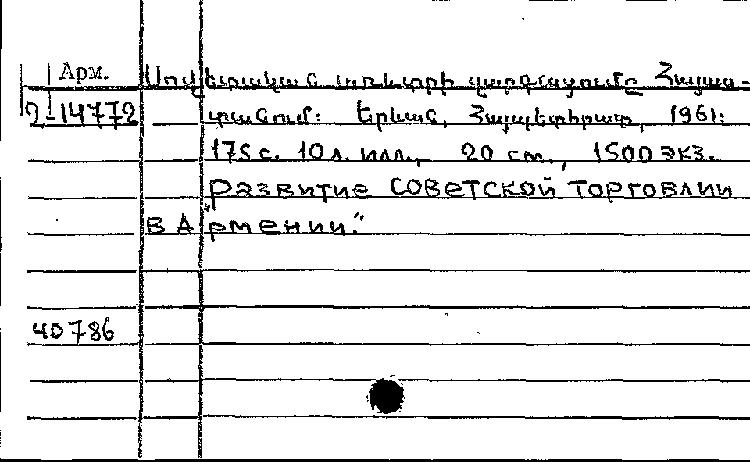 Арм. Սովետական առևտրի զարգացումը Հայաս-
2-14772 տանում: Երևան, Հայպետհրատ, 1961:
175 с. 10 л. илл., 20 см., 1500 экз.
"Развитие советской торговлии
в Армении."
40786